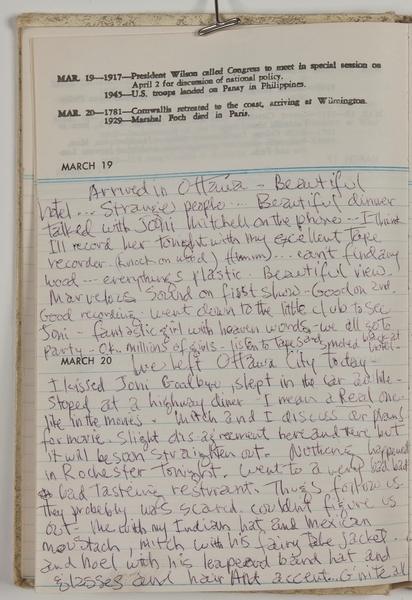 MAR. 19—1917—President Wilson called Congress to meet in special session on
April 2 for discussion of national policy.
1945—U.S. troops landed on Panay in Philippines.
MAR. 20—1781—Cornwallis retreated to the coast, arriving at Wilmington.
1929—Marshal Foch died in Paris.
MARCH 19
Arrived in Ottawa - Beautiful
hotel... Strange people... Beautiful dinner
talked with Joni Mitchell on the phone... I think
I'll record her tonight with my excellent tape
recorder (knock on wood) (Hmmm)... cant find any
wood... everythings plastic. Beautiful view.
Marvelous sound on first show - Good on 2nd.
Good recording. went down to the little club to see
Joni - fantastic girl with heaven words - we all go to
party - Ok. millions of girls - listen to tapes and smoked back at hotel -
MARCH 20
we left Ottawa City today -
I kissed Joni Goodbye, slept in the car
Stoped at a highway diner I mean a Real one
like in the movies. Mitch and I discuss our plans
for movie. slight dis agreement here and there but
it will be soon straighten out. Nothing happened
in Rochester Tonight. Went to a very bad bad
bad tasteing resturant. Thugs follow us.
They probably was scared. couldnt figure us
out - Me with my Indian hat and mexican
moustach, mitch with his fairy tale jacket
and Noel with his leapeord band hat and
glasses and hair And accent... G'nite all